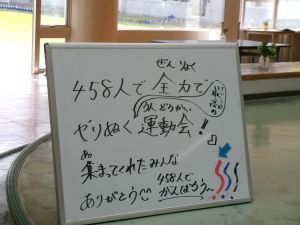 ぜん りょく
458人で全力で
最高の
うんどうかい
やりぬく運動会!』
あつ
集まってくれたみんな
ありがとう
458人で
がんばろう〜